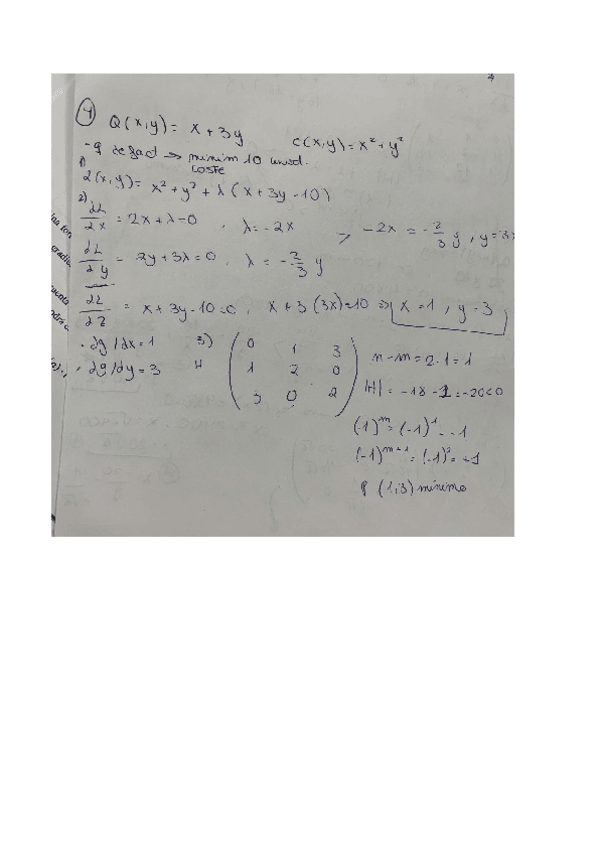 4 Q(x,y) = x + 3y   C(x,y) = x² + y²
minim 10 unid.
coste
1)
L(x,y) = x² + y² + λ(x + 3y - 10)
2)
dL/dx = 2x + λ = 0 , λ = -2x
-2x = -2/3 y , y = 3x
dL/dy = 2y + 3λ = 0 , λ = -2/3 y
= x + 3y - 10 = 0 , x + 3(3x) = 10 ⇒ x = 1 , y = 3
· dg/dx = 1   3)
· dg/dy = 3   H
0 1 3
1 2 0
3 0 2
n - m = 2 - 1 = 1
|H| = -18 - 2 = -20 < 0
(-1)^m = (-1)^1 = -1
(-1)^m+1 = (-1)² = +1
(1,3) mínimo